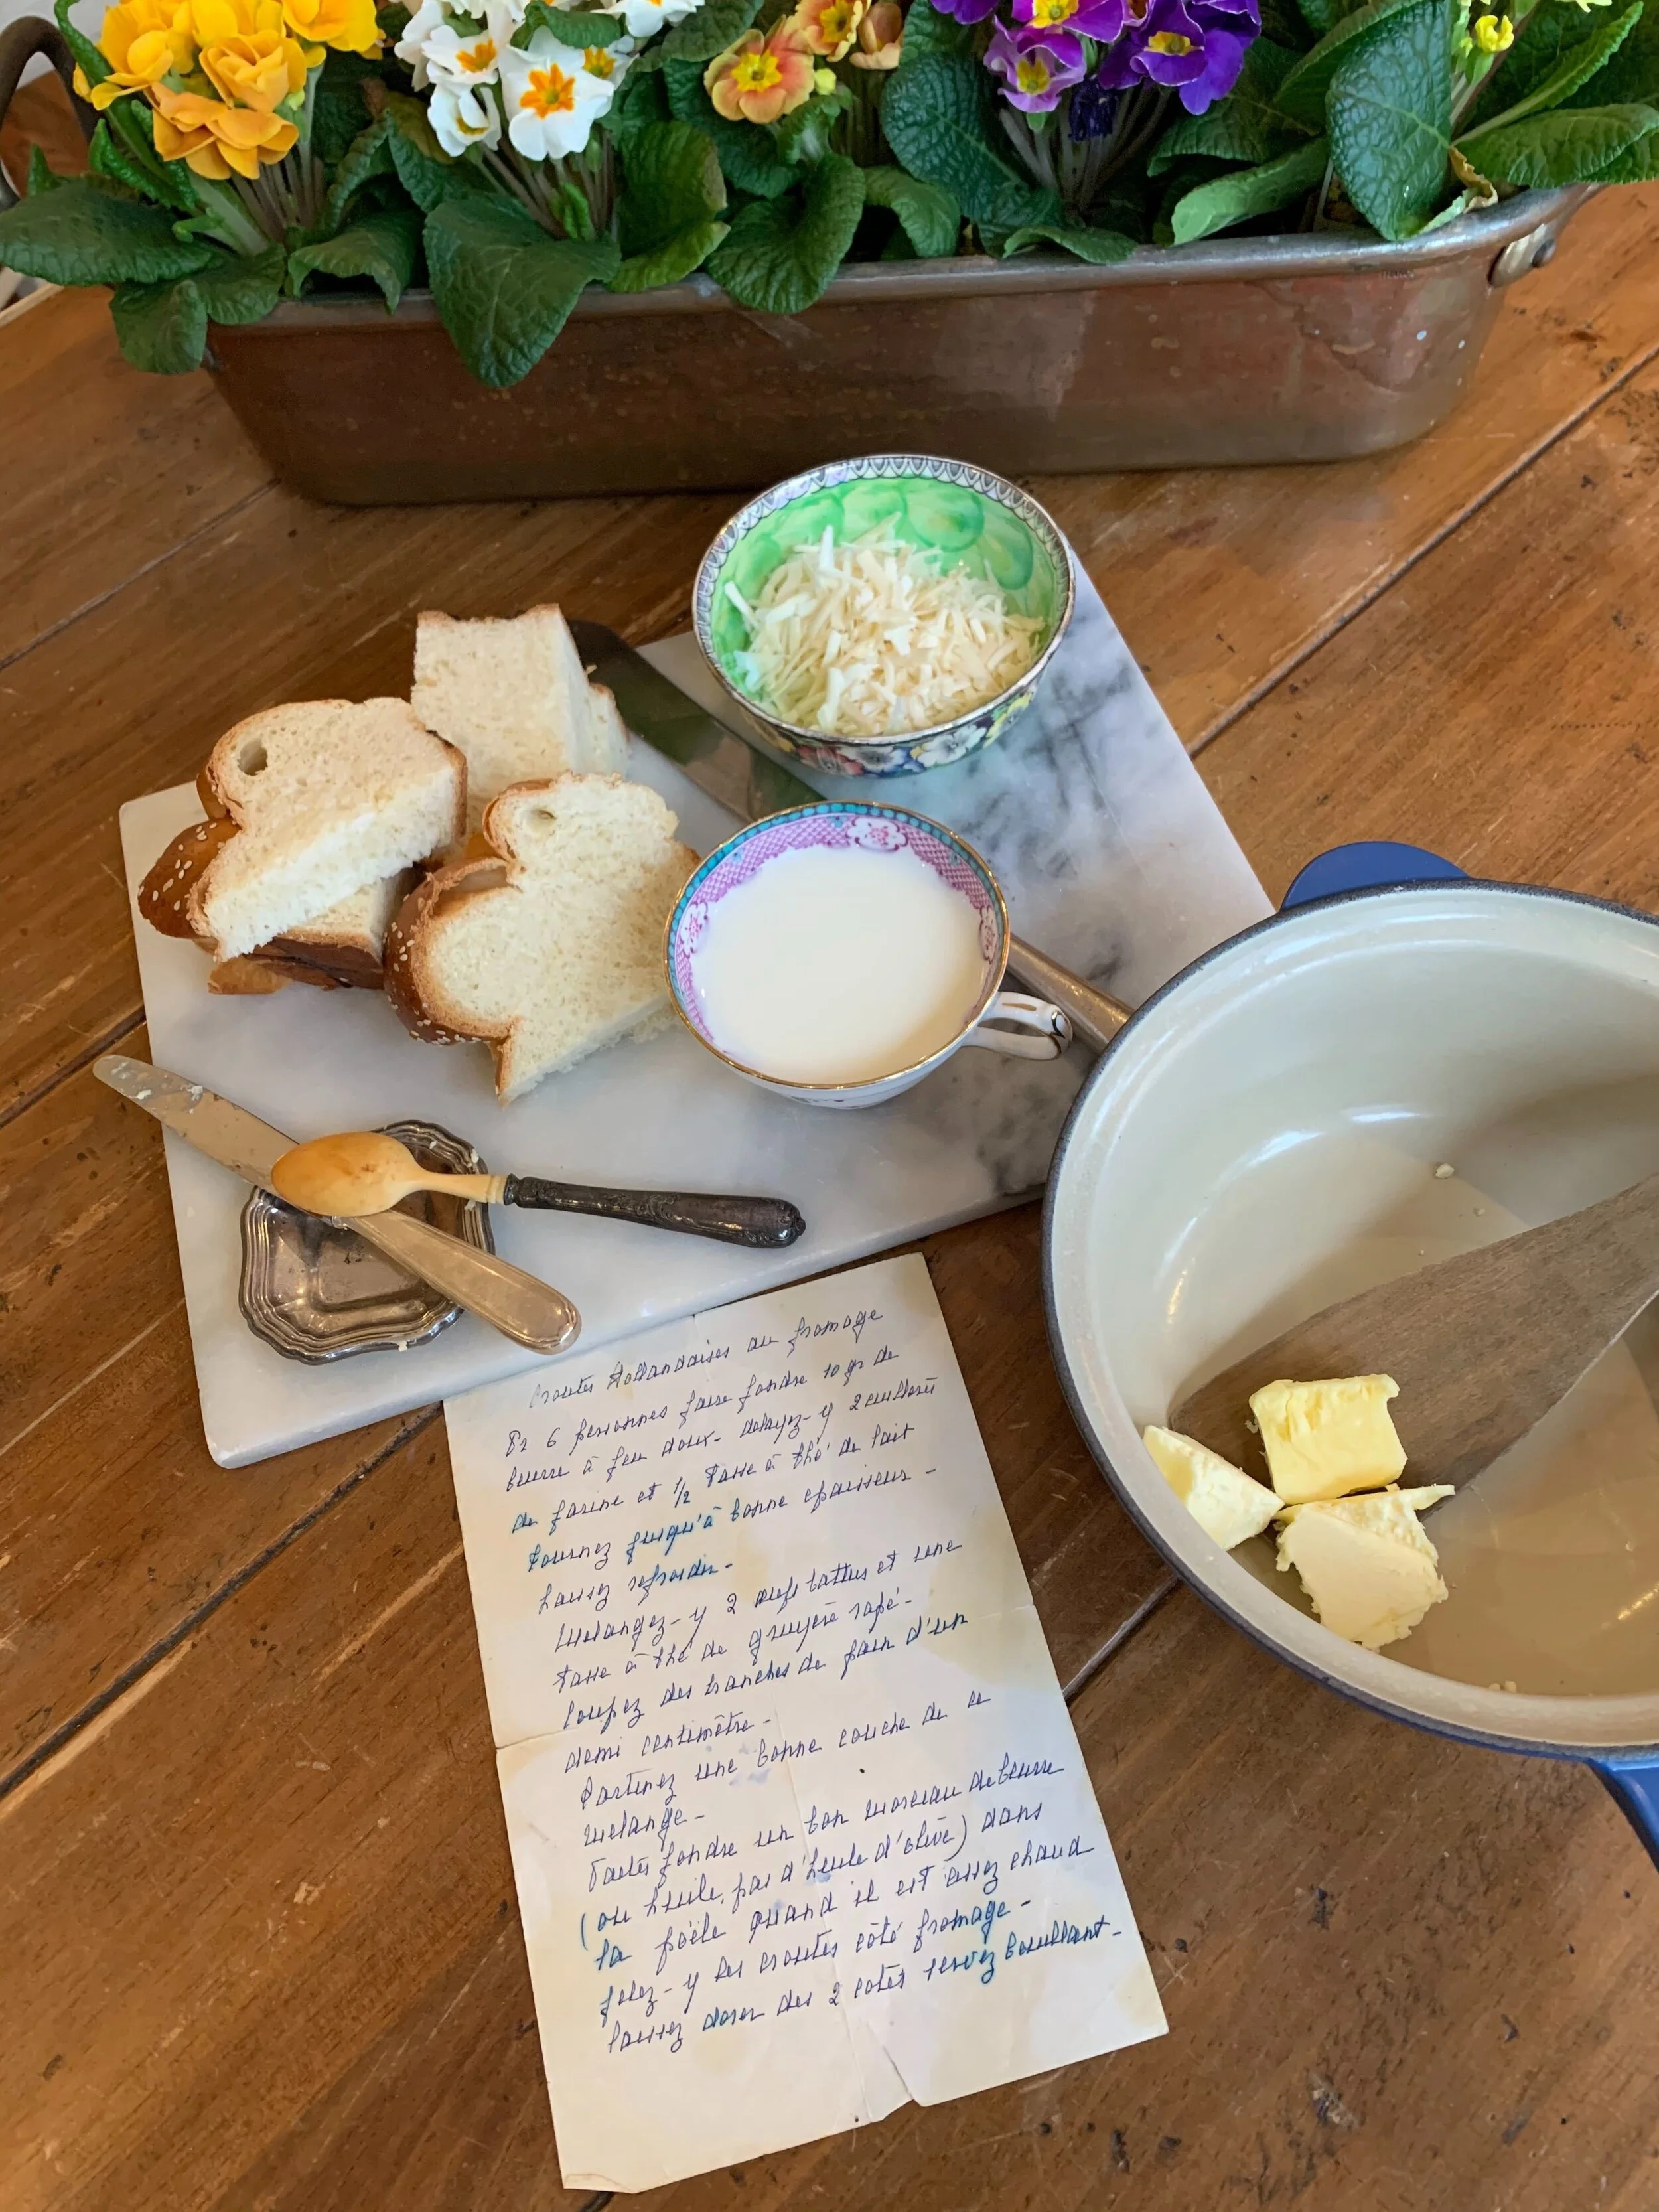 Croutes Hollandaises au fromage
Pr 6 personnes faire fondre 10 gr de
beurre à feu doux - delayez-y 2 cuillerées
de farine et 1/2 tasse à thé de lait
tournez jusqu'à bonne epaisseur -
Laissez refroidir -
Melangez-y 2 oeufs battus et une
tasse à thé de gruyère rapé -
Coupez des tranches de pain d'un
demi centimètre -
Tartinez une bonne couche de ce
melange -
Faites fondre un bon morceau de beurre
(ou huile, pas d'huile d'olive) dans
la poële quand il est assez chaud
jetez-y les croutes côté fromage -
laissez dorer des 2 cotés servez bouillant -